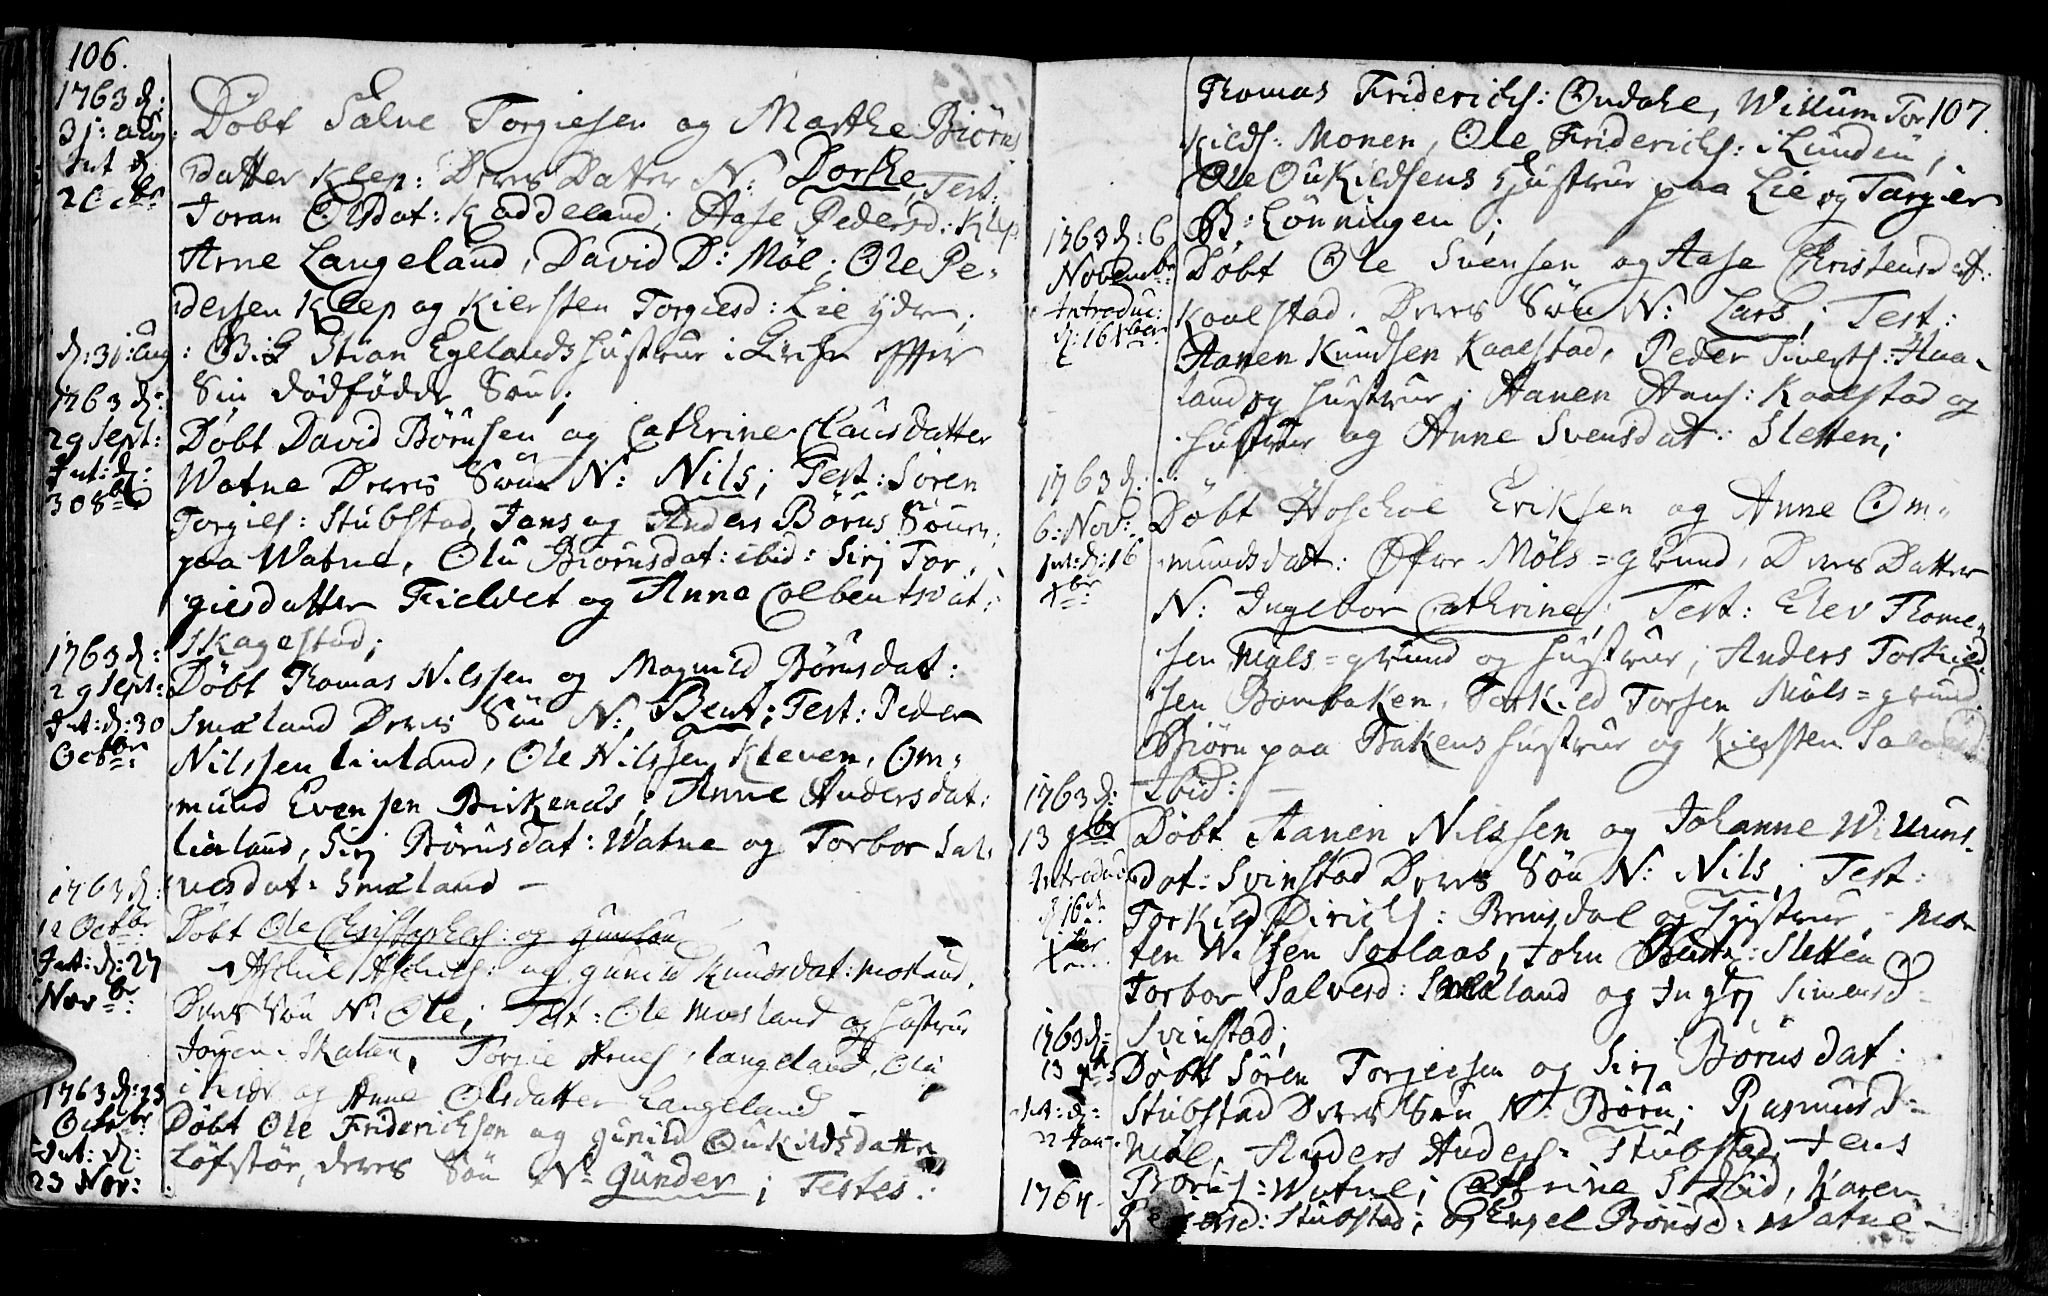 106.
1763 d:
31: aug:
Int d
2 Octbr
Döbt Salve Torgiesen og Marthe Biörns
datter Klep: Deres Datter N: Dorthe, Test:
Joran Olsdat: Kaddeland; Aase Pedersd: Klep
Arne Langeland, David D: Möl; Ole Pe-
dersen Klep og Kiersten Torgiesd: Lie ydre;
d: 31: aug: Gik Stian Egelands hustrue i Kirke effter
Sin dödfödde Sön;
1763 d:
29 Sept:
Int: d:
30 8br
Döbt David Börnsen og Cathrine Clausdatter
Watne Deres Sön N: Nils; Test: Sören
Torgies: Stubstad, Jens og Anders Börns Sönner
paa Watne, Olu Biörnsdat: ibid: Sirj Tor-
giesdatter Fieldet og Anne Colbentsdat:
Skagestad;
1763 d:
29 Sept:
Int: d: 30
Octbr:
Döbt Thomas Nilssen og Magnild Börnsdat:
Smæland Deres Sön N: Bent; Test: Peder
Nilssen Linland, Ole Nilssen Kleven, Om-
mund Evensen Birkenes; Anne Andersdat:
Linland, Sirj Börnsdat: Watne og Torbor Sal-
vesdat: Smæland –
1763 d:
12 Octbr
Int: d: 27
Novbr:
Döbt Ole Christophers: og
Aschil Aschils: og gunild Knudsdat: Mosland,
Deres Sön N: Ole; Test: Ole Mosland og hustrue
Jörgen Skallen, Torgie Arnes: Langeland, Ole
i og Anne Olsdatter Langeland –
1763 d: 23
Octbr
Int: d:
23 Nov:
Döbt Ole Friderichsen og gunild Oukildsdatter
Löfstör, deres Sön N: Gunder; Testes:
107.
Thomas Friderichs: Ondahe, Willum Tor
Kilds: Monen, Ole Friderichs: i Lunden,
Ole Oukieldsens hustrue paa Lie og Targier
B: Lönningen;
1763 d: 6
Novembr
Introdu:
d: 16 Xber
Döbt Ole Svensen og Aase Christensdat:
Kaalstad. Deres Sön N: Lars; Test:
Aanen Knudsen Kaalstad, Peder Siverts: Haa-
land og hustrue; Aanen Hans: Kaalstad og
hustrue og Anne Svensdat: Sletten;
1763 d:
6: Nov:
Int: d: 16
Xbr:
Döbt Hoschol Eriksen og Anne Om-
mundsdat: Öfre Möls=grund, Deres Datter
N: Ingebor Cathrine; Test: Elev Thome-
sen Möls=grund og hustrue; Anders Torkield-
sen Bombaken, Torkied Torsen Möls=grund
Biörn paa Bakens hustrue og Kiersten
Ibid: –
1763 d:
13 9br
Introdu
d 16d
Xber
Döbt Aanen Nilssen og Johanne Willums-
dat: Svinstad Deres Sön N: Nils; Test:
Torkild Dirichs: Brinsdal og hustrue, Mor-
ten Nilsen Soolaas, John Bents: Sletten
Torbor Salvesd: Smæland og Ingerj Simensd-
Svinstad;
1763 d:
13 9br:
Int: d:
22 Jan:
1764.
Döbt Sören Torgiersen og Sirj Börnsdat:
Stubstad Deres Sön N: Börn; Rasmus D:
Möl, Anders Anders: Stubstad, Jens
Börns: Watne; Cathrine Ibid, Karen
Stubstad; og Engel Börnsd: Watne –